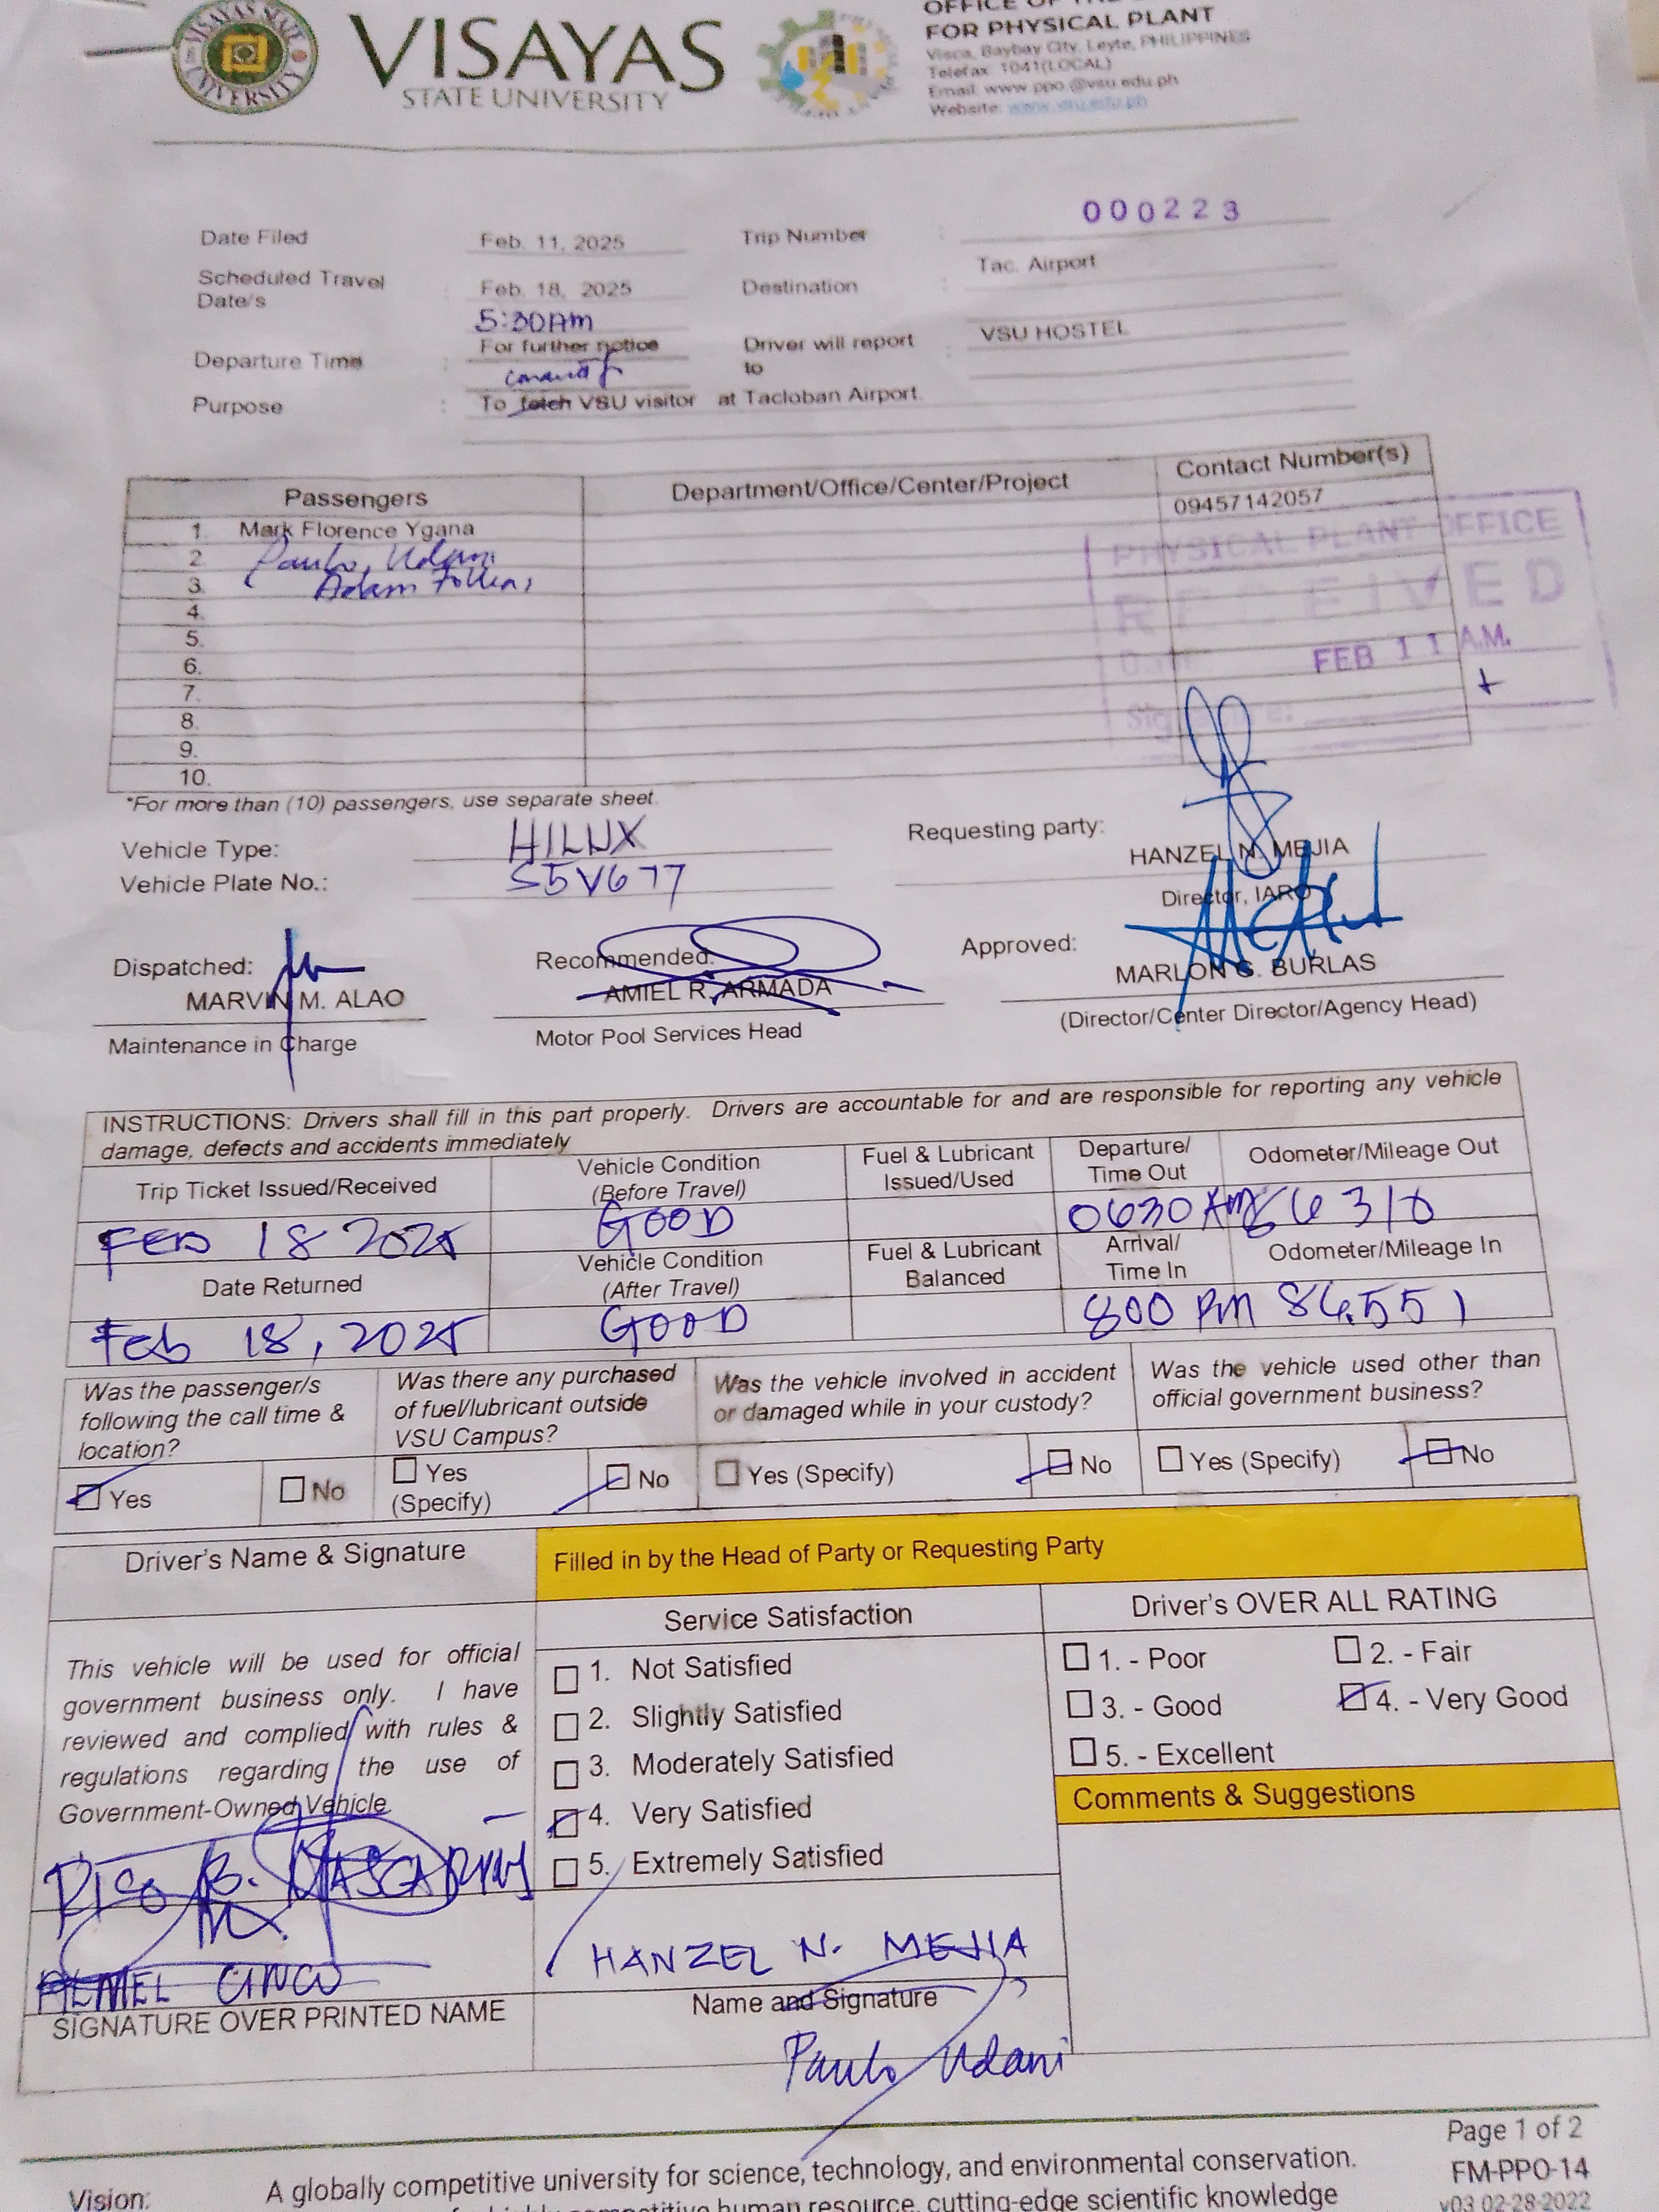 VISAYAS
STATE UNIVERSITY
OFFICE OF THE
FOR PHYSICAL PLANT
Visca, Baybay City, Leyte, PHILIPPINES
Telefax: 1041(LOCAL)
Email: www ppo @vsu.edu.ph
Website: www.vsu.edu.ph
000223
Date Filed Feb. 11, 2025 Trip Number :
Scheduled Travel Date/s : Feb. 18, 2025 Destination : Tac. Airport
5:30Am
Departure Time : For further notice Driver will report to : VSU HOSTEL
Purpose : To fetch VSU visitor at Tacloban Airport.
Passengers Department/Office/Center/Project Contact Number(s)
1. Mark Florence Ygana 09457142057
2 Paulo Udani
3. Adam
4.
5.
6.
7.
8.
9.
10.
PHYSICAL PLANT OFFICE
RECEIVED
Date: FEB 11 A.M.
Signature:
*For more than (10) passengers, use separate sheet.
Vehicle Type: HILUX
Vehicle Plate No.: S5V677
Requesting party:
HANZEL N. MEJIA
Director, IARO
Dispatched: Recommended: Approved:
MARVIN M. ALAO AMIEL R. ARMADA MARLON G. BURLAS
Maintenance in Charge Motor Pool Services Head (Director/Center Director/Agency Head)
INSTRUCTIONS: Drivers shall fill in this part properly. Drivers are accountable for and are responsible for reporting any vehicle
damage, defects and accidents immediately
Trip Ticket Issued/Received Vehicle Condition (Before Travel) Fuel & Lubricant Issued/Used Departure/ Time Out Odometer/Mileage Out
FEB 18 2025 GOOD 0630 AM 86310
Date Returned Vehicle Condition (After Travel) Fuel & Lubricant Balanced Arrival/ Time In Odometer/Mileage In
Feb 18, 2025 GOOD 800 PM 86,551
Was the passenger/s following the call time & location?
Was there any purchased of fuel/lubricant outside VSU Campus?
Was the vehicle involved in accident or damaged while in your custody?
Was the vehicle used other than official government business?
Yes No Yes (Specify) No Yes (Specify) No Yes (Specify) No
Driver's Name & Signature
Filled in by the Head of Party or Requesting Party
Service Satisfaction
Driver's OVER ALL RATING
This vehicle will be used for official
government business only. I have
reviewed and complied with rules &
regulations regarding the use of
Government-Owned Vehicle
1. Not Satisfied
2. Slightly Satisfied
3. Moderately Satisfied
4. Very Satisfied
5. Extremely Satisfied
1. - Poor 2. - Fair
3. - Good 4. - Very Good
5. - Excellent
Comments & Suggestions
CINCO
SIGNATURE OVER PRINTED NAME
HANZEL N. MEJIA
Name and Signature
Paulo Udani
Page 1 of 2
FM-PPO-14
v03 02-28-2022
Vision: A globally competitive university for science, technology, and environmental conservation.
human resource, cutting-edge scientific knowledge